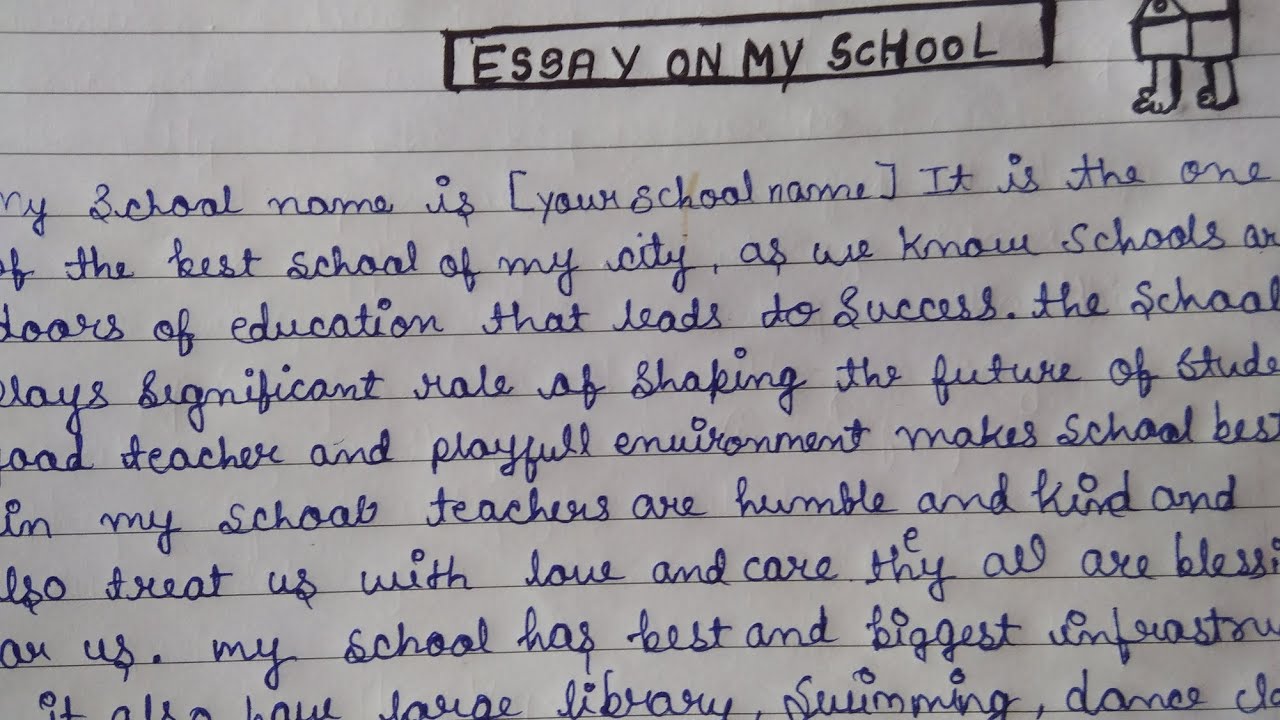 ESSAY ON MY SCHOOL
My School name is [your school name] It is the one
of the best school of my city, as we know Schools ar
doors of education that leads to Success. the School
plays significant role of shaping the future of stude
good teacher and playfull environment makes School best
in my school teachers are humble and kind and
also treat us with love and care they all are blessi
for us. my school has best and biggest infrastru
it also have large library, Swimming, dance cla